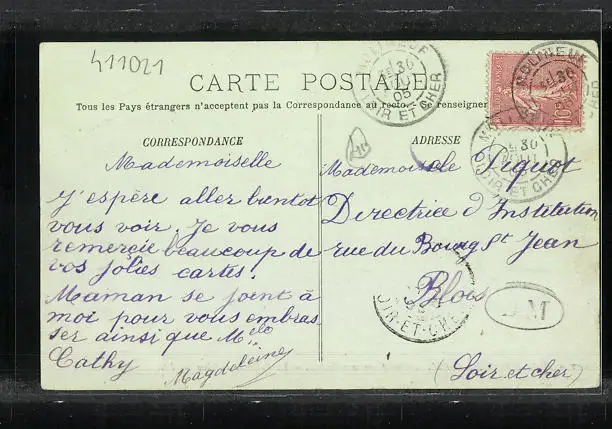 411021
CARTE POSTALE
Tous les Pays étrangers n'acceptent pas la Correspondance au recto. Se renseigner
CORRESPONDANCE
Mademoiselle
J'espère aller bientot
vous voir. Je vous
remercie beaucoup de
vos jolies cartes.
Maman se joint à
moi pour vous embras
ser ainsi que Mlle
Cathy
Magdeleine
ADRESSE
Mademoiselle Piquot
Directrice d'Institution
rue du Bourg St Jean
Blois
(Loir et cher)
MOLINEUF
30
05
LOIR ET CHER
MOLINEUF
30
10c
30
LOIR ET CHER
LOIR-ET-CHER
M